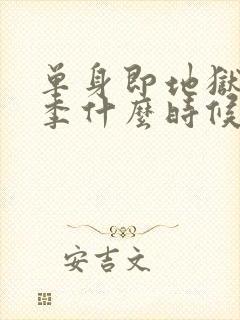 單身即地獄
季什麼時候
安吉文